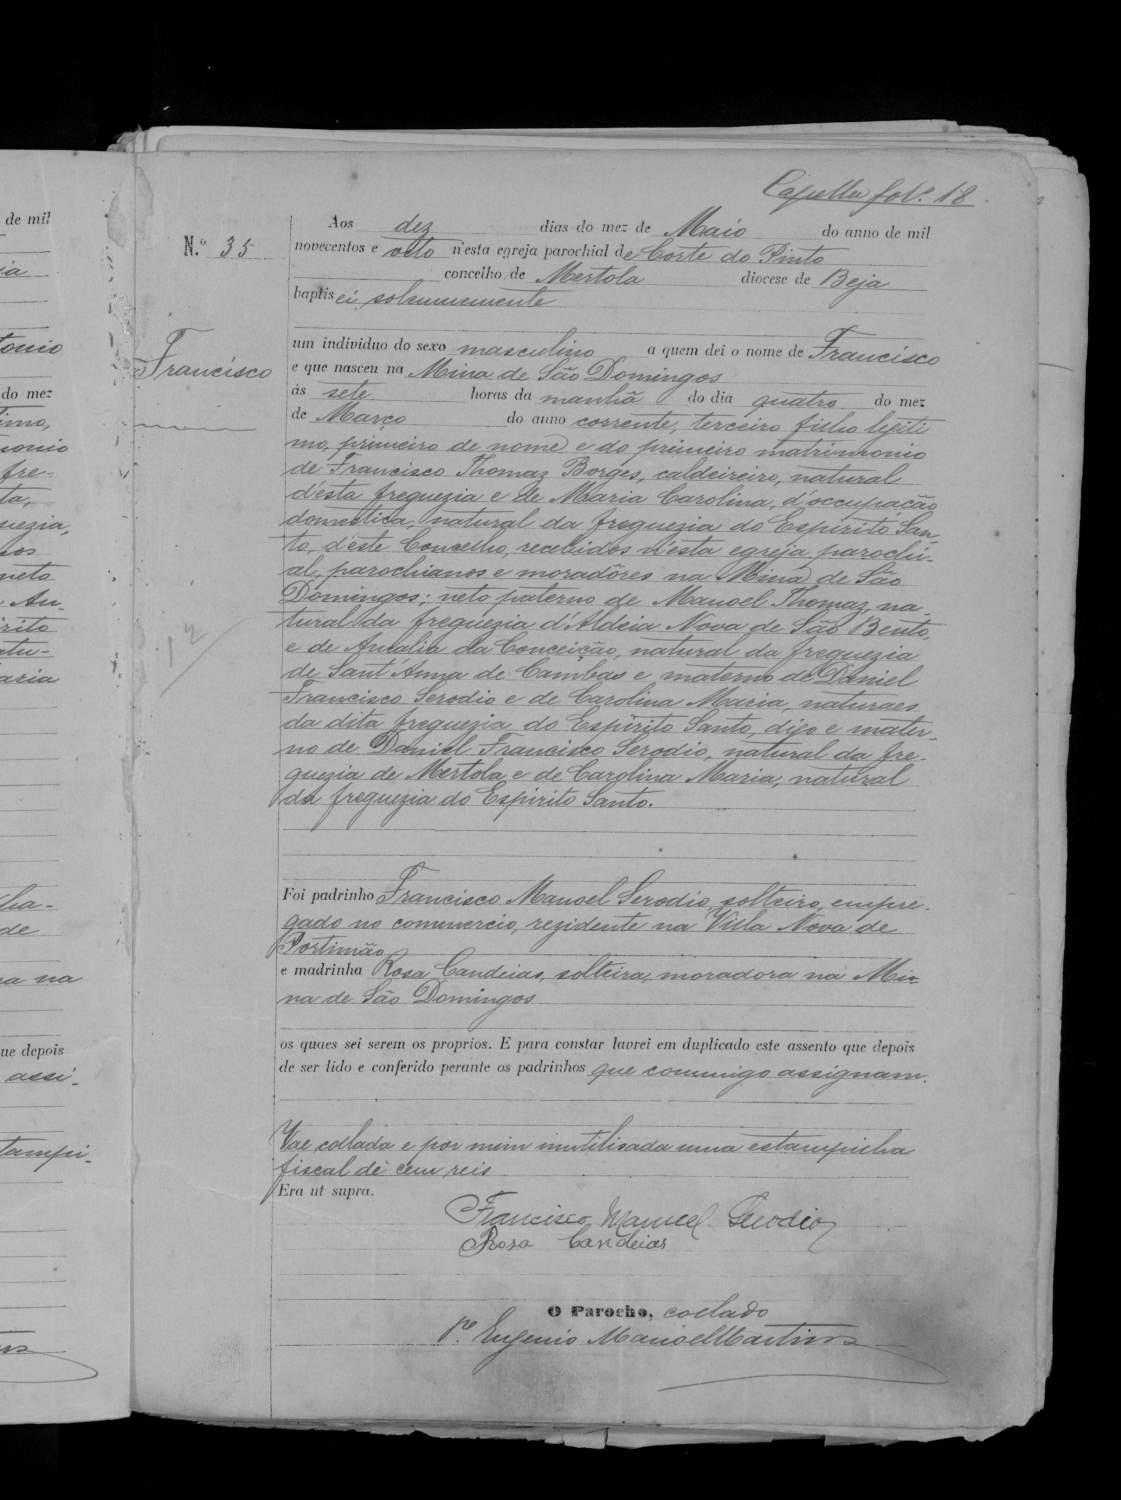 Capella fol.º 18
Aos dez dias do mez de Maio do anno de mil
N.º 35
novecentos e oito n'esta egreja parochial de Corte do Pinto
concelho de Mertola diocese de Beja
baptisei solemnemente
um individuo do sexo masculino a quem dei o nome de Francisco
Francisco
e que nasceu na Mina de São Domingos
ás sete horas da manhã do dia quatro do mez
de Março do anno corrente, terceiro filho legiti
mo, primeiro de nome e do primeiro matrimonio
de Francisco Thomaz Borges, caldeireiro, natural
d'esta freguezia e de Maria Carolina, d'occupação
domestica, natural da freguezia do Espirito San
to, d'este Concelho, recebidos n'esta egreja parochi-
al, parochianos e moradôres na Mina de São
Domingos; neto paterno de Manoel Thomaz, na-
tural da freguezia d'Aldeia Nova de São Bento,
e de Amalia da Conceição, natural da freguezia
12
de Sant'Anna de Cambas e materno de Daniel
Francisco Serodio e de Carolina Maria, naturaes
da dita freguezia do Espirito Santo, digo e mater-
no de Daniel Francisco Serodio, natural da fre-
guezia de Mertola, e de Carolina Maria, natural
da freguezia do Espirito Santo.
Foi padrinho Francisco Manoel Serodio, solteiro, empre-
gado no commercio, rezidente na Villa Nova de
Portimão
e madrinha Rosa Candeias, solteira, moradora na Mi-
na de São Domingos
os quaes sei serem os proprios. E para constar lavrei em duplicado este assento que depois
de ser lido e conferido perante os padrinhos que commigo assignam.
Vae collada e por mim inutilisada uma estampilha
fiscal de cem reis
Era ut supra.
Francisco Manuel Serodio
Rosa Candeias
O Parocho, collado
P.e Eugenio Manoel Martins